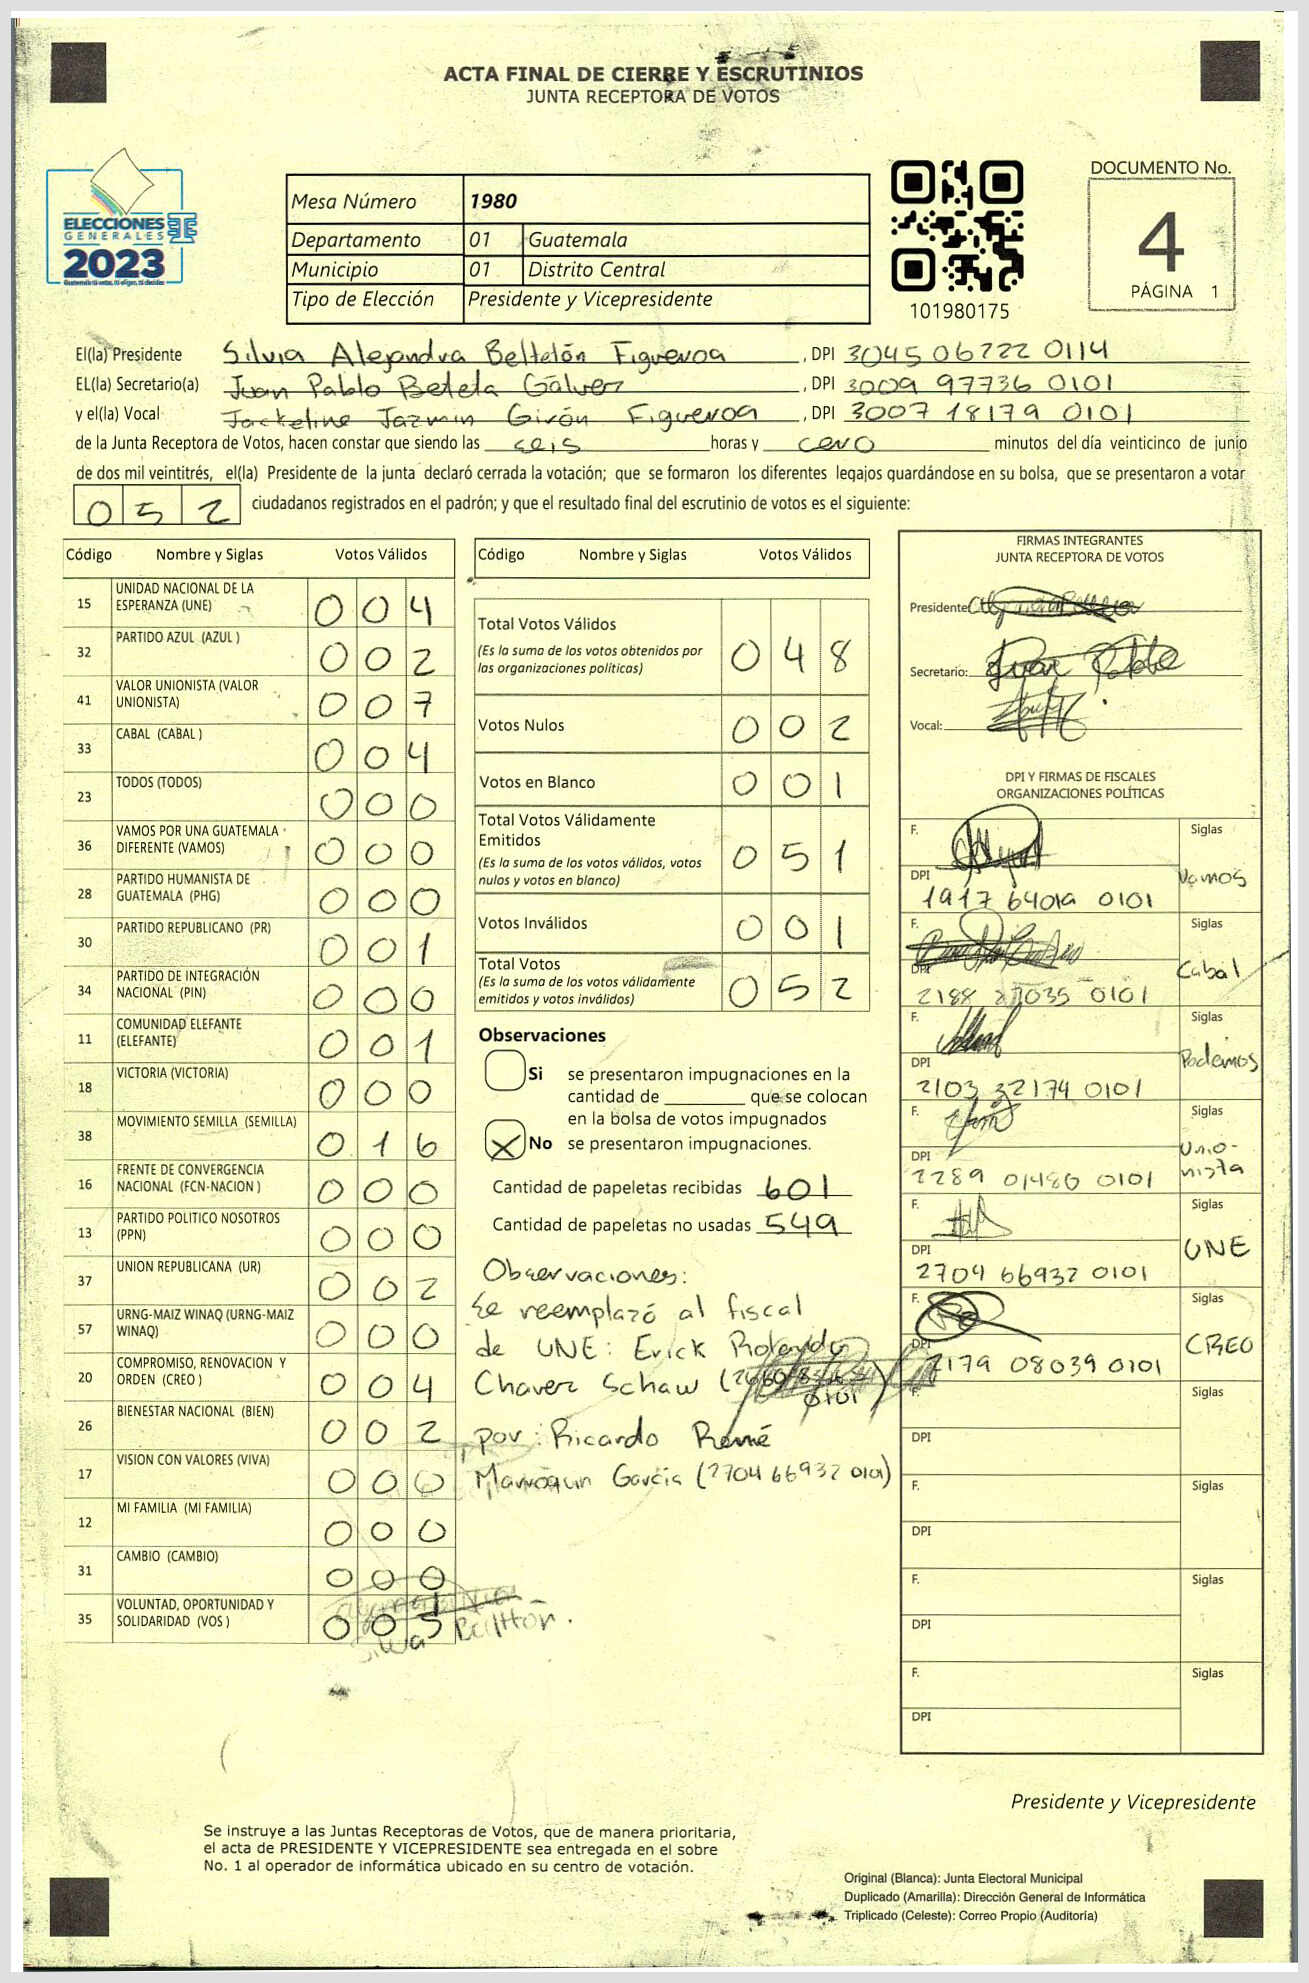 ACTA FINAL DE CIERRE Y ESCRUTINIOS
JUNTA RECEPTORA DE VOTOS
ELECCIONES
GENERALES
2023
Mesa Número 1980
Departamento 01 Guatemala
Municipio 01 Distrito Central
Tipo de Elección Presidente y Vicepresidente
101980175
DOCUMENTO No.
4
PÁGINA 1
El(la) Presidente Silvia Alejandra Beltetón Figueroa , DPI 3045 06722 0114
EL(la) Secretario(a) Juan Pablo Beteta Gálvez , DPI 3009 97736 0101
y el(la) Vocal Jackeline Jazmin Girón Figueroa , DPI 3007 18179 0101
de la Junta Receptora de Votos, hacen constar que siendo las seis horas y cero minutos del día veinticinco de junio
de dos mil veintitrés, el(la) Presidente de la junta declaró cerrada la votación; que se formaron los diferentes legajos guardándose en su bolsa, que se presentaron a votar
052 ciudadanos registrados en el padrón; y que el resultado final del escrutinio de votos es el siguiente:
Código Nombre y Siglas Votos Válidos
15 UNIDAD NACIONAL DE LA ESPERANZA (UNE) 004
32 PARTIDO AZUL (AZUL ) 002
41 VALOR UNIONISTA (VALOR UNIONISTA) 007
33 CABAL (CABAL ) 004
23 TODOS (TODOS) 000
36 VAMOS POR UNA GUATEMALA DIFERENTE (VAMOS) 000
28 PARTIDO HUMANISTA DE GUATEMALA (PHG) 000
30 PARTIDO REPUBLICANO (PR) 001
34 PARTIDO DE INTEGRACIÓN NACIONAL (PIN) 000
11 COMUNIDAD ELEFANTE (ELEFANTE) 001
18 VICTORIA (VICTORIA) 000
38 MOVIMIENTO SEMILLA (SEMILLA) 016
16 FRENTE DE CONVERGENCIA NACIONAL (FCN-NACION ) 000
13 PARTIDO POLITICO NOSOTROS (PPN) 000
37 UNION REPUBLICANA (UR) 002
57 URNG-MAIZ WINAQ (URNG-MAIZ WINAQ) 000
20 COMPROMISO, RENOVACION Y ORDEN (CREO ) 004
26 BIENESTAR NACIONAL (BIEN) 002
17 VISION CON VALORES (VIVA) 000
12 MI FAMILIA (MI FAMILIA) 000
31 CAMBIO (CAMBIO) 000
35 VOLUNTAD, OPORTUNIDAD Y SOLIDARIDAD (VOS ) 005
Código Nombre y Siglas Votos Válidos
Total Votos Válidos 048
(Es la suma de los votos obtenidos por
las organizaciones políticas)
Votos Nulos 002
Votos en Blanco 001
Total Votos Válidamente
Emitidos 051
(Es la suma de los votos válidos, votos
nulos y votos en blanco)
Votos Inválidos 001
Total Votos 052
(Es la suma de los votos válidamente
emitidos y votos inválidos)
Observaciones
Si se presentaron impugnaciones en la
cantidad de que se colocan
en la bolsa de votos impugnados
X No se presentaron impugnaciones.
Cantidad de papeletas recibidas 601
Cantidad de papeletas no usadas 549
Observaciones:
Se reemplazó al fiscal
de UNE: Erick Rolando
Chavez Schaw
0101
por: Ricardo René
Marroquin García (2704 66932 0101)
FIRMAS INTEGRANTES
JUNTA RECEPTORA DE VOTOS
Presidente:
Secretario:
Vocal:
DPI Y FIRMAS DE FISCALES
ORGANIZACIONES POLÍTICAS
F. Siglas
DPI Vamos
1917 64019 0101
F. Siglas
DPI Cabal
2188 27035 0101
F. Siglas
DPI Podemos
2103 32174 0101
F. Siglas
DPI Unio-
nista
2289 01480 0101
F. Siglas
DPI UNE
2704 66932 0101
F. Siglas
DPI CREO
2179 08039 0101
F. Siglas
DPI
F. Siglas
DPI
F. Siglas
DPI
F. Siglas
DPI
Presidente y Vicepresidente
Se instruye a las Juntas Receptoras de Votos, que de manera prioritaria,
el acta de PRESIDENTE Y VICEPRESIDENTE sea entregada en el sobre
No. 1 al operador de informática ubicado en su centro de votación.
Original (Blanca): Junta Electoral Municipal
Duplicado (Amarilla): Dirección General de Informática
Triplicado (Celeste): Correo Propio (Auditoría)